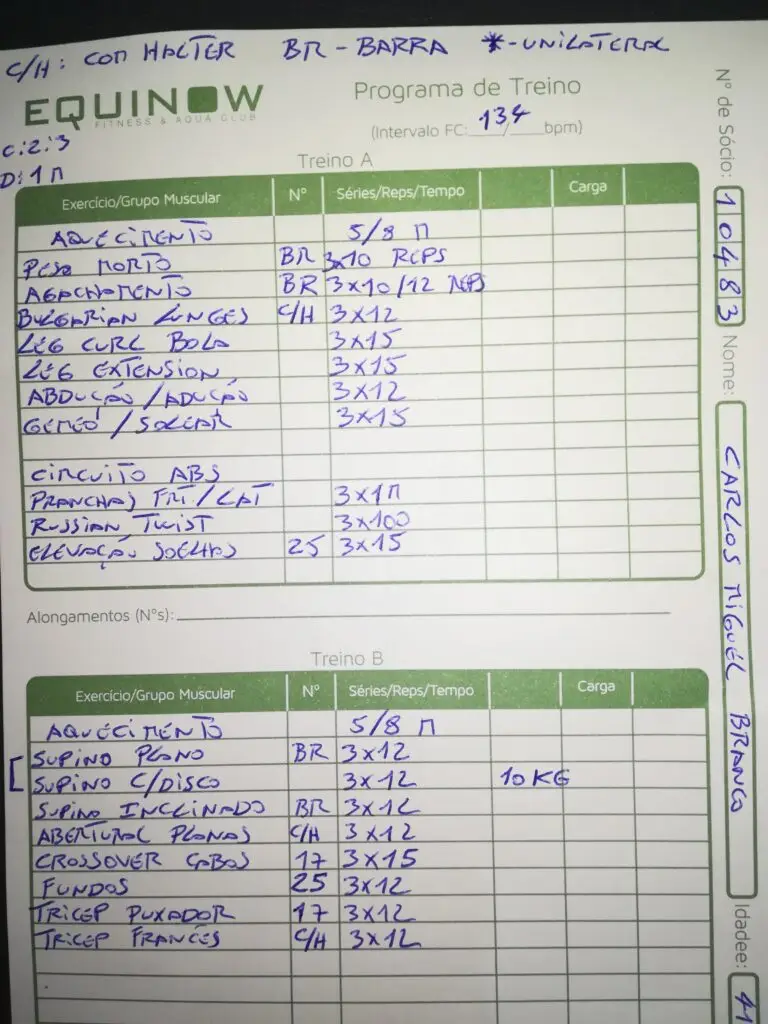 C/H: COM HALTER BR - BARRA *-UNILATERAL
EQUINOW
FITNESS & AQUA CLUB
Programa de Treino
(Intervalo FC: 134 / bpm)
C:2:3
D:1M
Treino A
Exercício/Grupo Muscular Nº Séries/Reps/Tempo Carga
AQUECIMENTO 5/8 M
PESO MORTO BR 3x10 REPS
AGACHAMENTO BR 3x10/12 REPS
BULGARIAN LUNGES C/H 3x12
LEG CURL BOLA 3x15
LEG EXTENSION 3x15
ABDUÇÃO/ADUÇÃO 3x12
GEMEO/SOLEAR 3x15
CIRCUITO ABS
PRANCHAS FRT/LAT 3x1M
RUSSIAN TWIST 3x100
ELEVAÇÃO JOELHOS 25 3x15
Alongamentos (Nºs):
Treino B
Exercício/Grupo Muscular Nº Séries/Reps/Tempo Carga
AQUECIMENTO 5/8 M
SUPINO PLANO BR 3x12
SUPINO C/DISCO 3x12 10KG
SUPINO INCLINADO BR 3x12
ABERTURAS PLANAS C/H 3x12
CROSSOVER CABOS 17 3x15
FUNDOS 25 3x12
TRICEP PUXADOR 17 3x12
TRICEP FRANCÊS C/H 3x12
Nº de Sócio: 10483
Nome: CARLOS MIGUÉL BRANCO
Idadee: 41